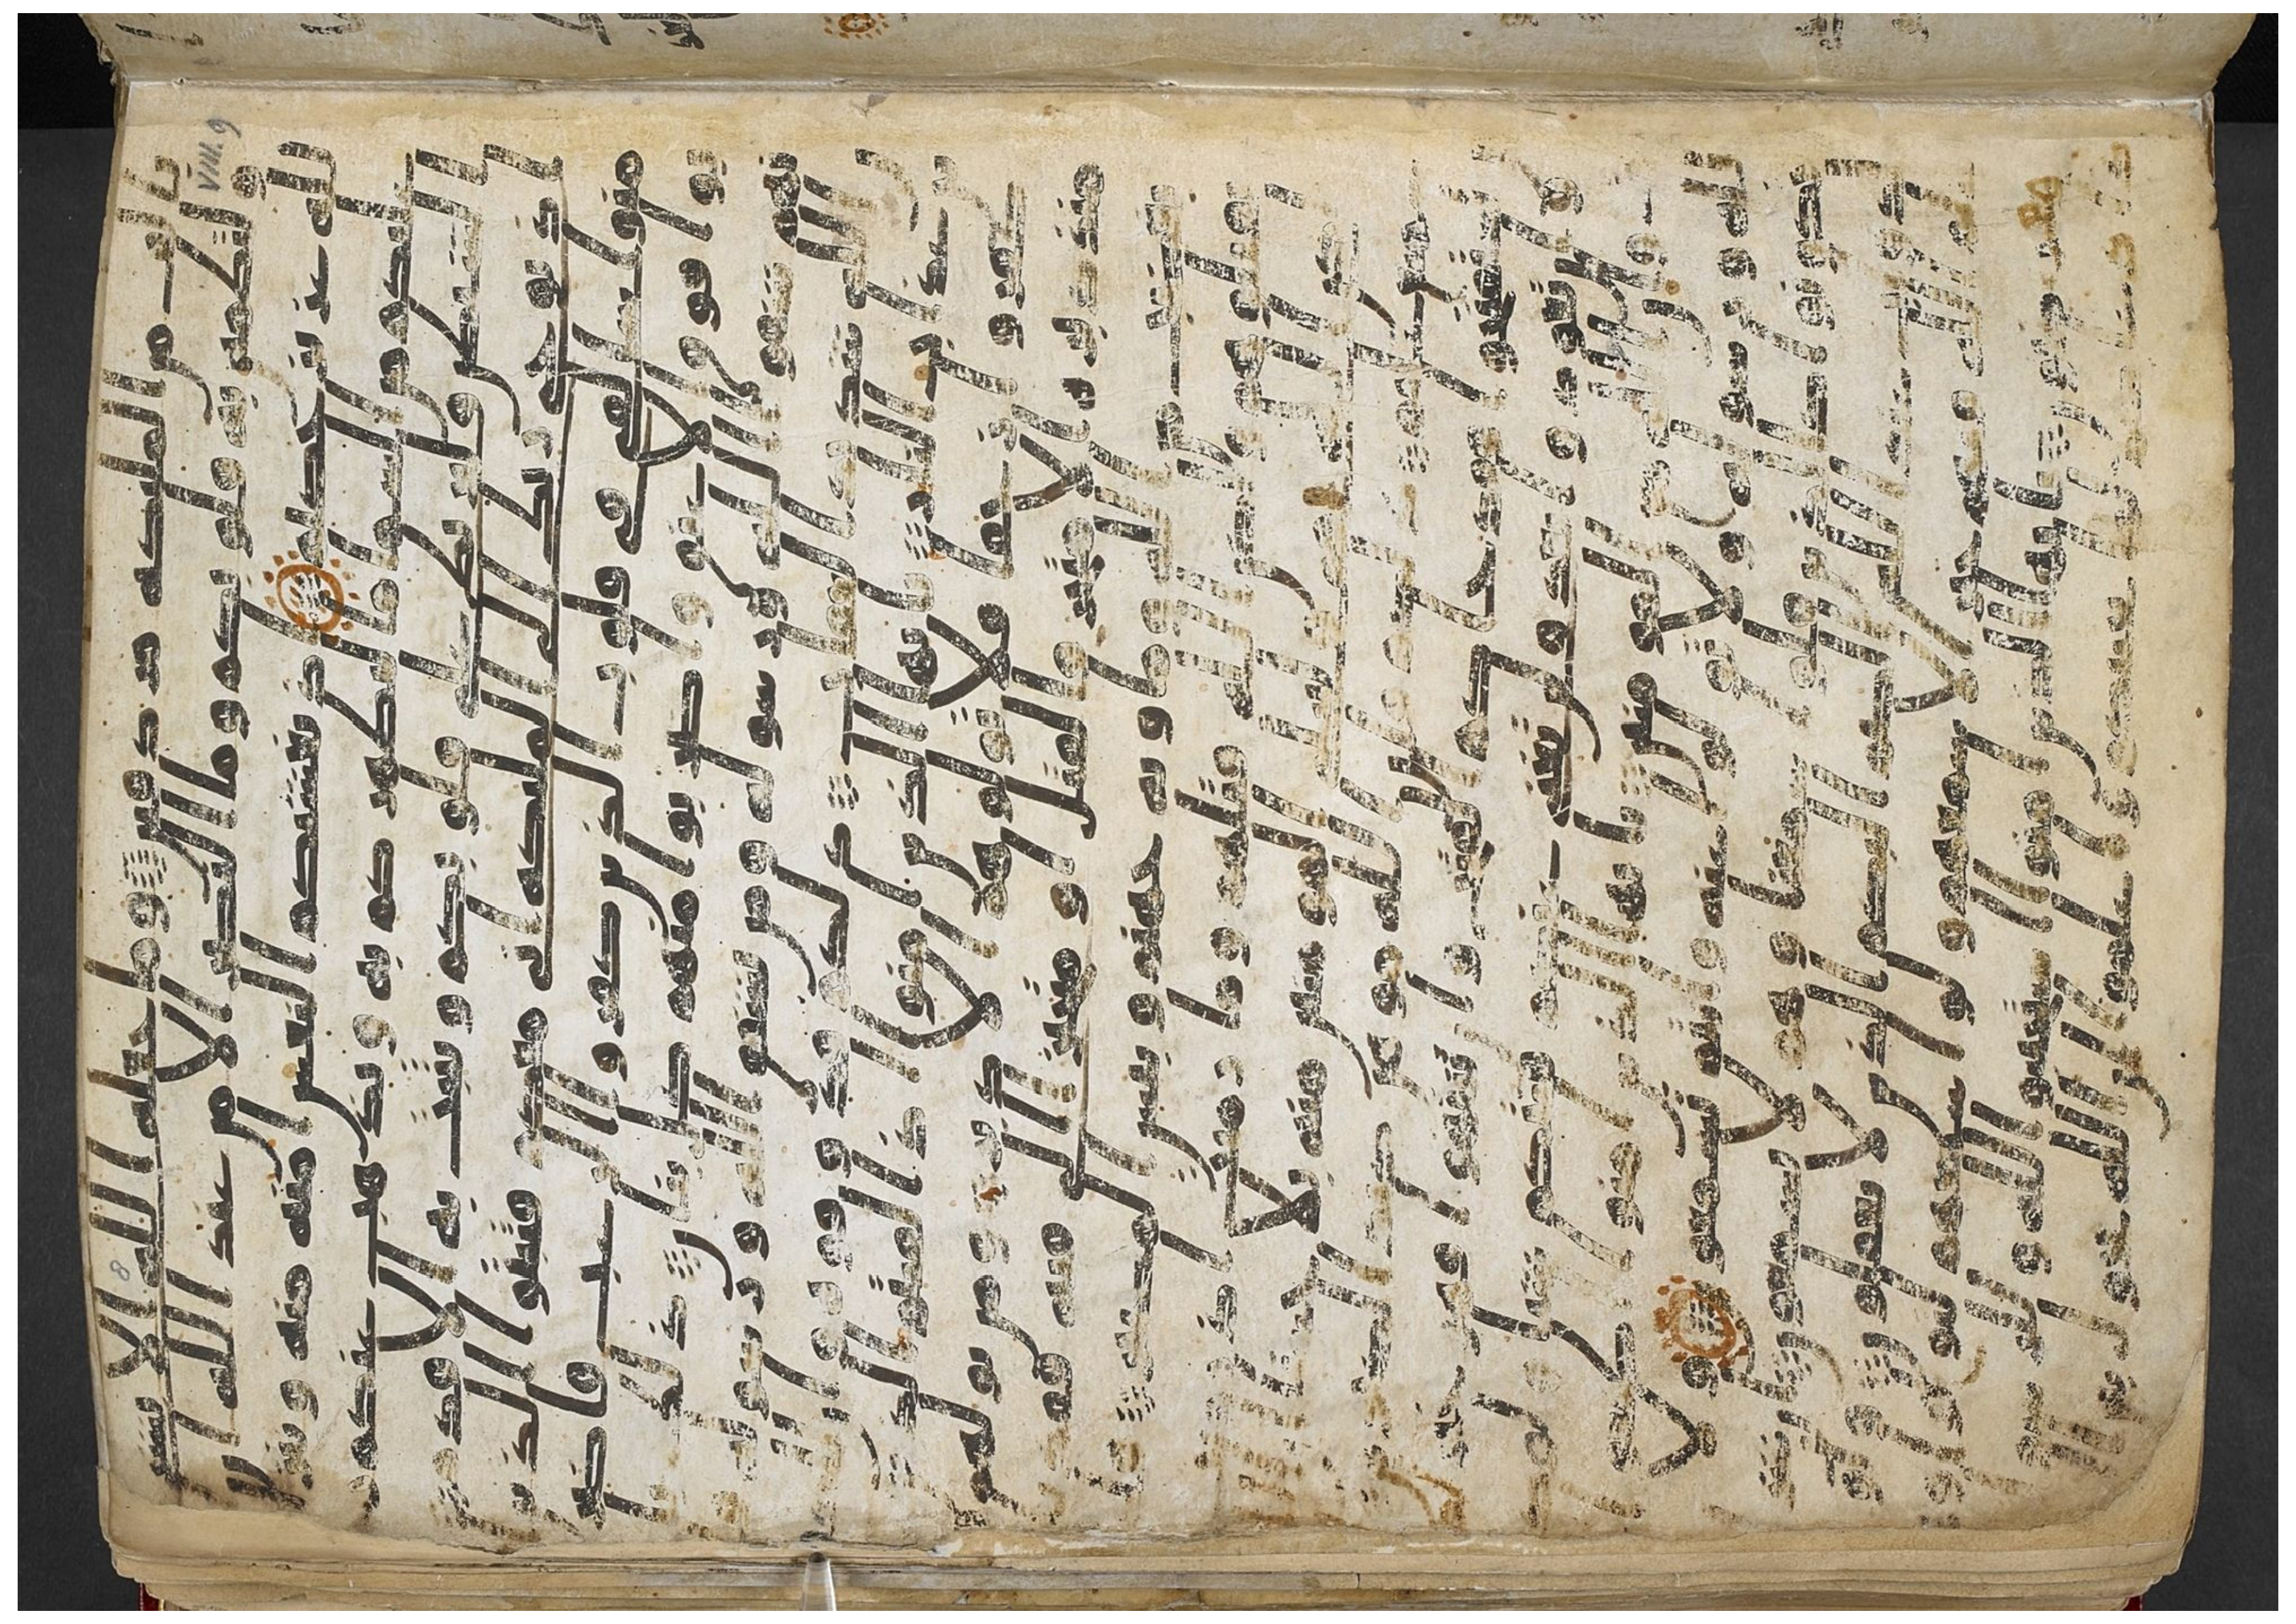 بالف من الملئكه مردفين وما جعله الله الا بشرى
ولتطمئن به قلوبكم وما النصر الا من عند الله ان ا
لله عزيز حكيم اذ يغشيكم النعس امنه منه وينز
ل عليكم من السما ما ليطهركم به ويذهب عنكم ر
جز الشيطن وليربط على قلوبكم ويثبت به الاقدم
اذ يوحى ربك الى الملئكه انى معكم فثبتوا الذين
امنوا سالقى فى قلوب الذين كفروا الرعب فاضر
بوا فوق الاعنق واضربوا منهم كل بنان ذلك با
نهم شقوا الله ورسوله ومن يشقق الله ورسوله فان
الله شديد العقاب ذلكم فذوقوه وان للكفر
ين عذاب النار يايها الذين امنوا اذا لقيتم الذين
كفروا زحفا فلا تولوهم الادبر ومن يولهم
يومئذ دبره الا متحرفا لقتل او متحيزا الى فئه فقد
با بغضب من الله وماويه جهنم وبئس المصير فلم
تقتلوهم ولكن الله قتلهم وما رميت اذ رميت
ولكن الله رمى وليبلى المومنين منه بلا حسنا ان
الله سميع عليم ذلكم وان الله موهن كيد الكفرين
ان تستفتحوا فقد جاكم الفتح وان تنتهوا فهو خير
لكم وان تعودوا نعد ولن تغنى عنكم فئتكم شيا ولو
كثرت وان الله مع المومنين يايها الذين امنوا اطيعوا ا
لله ورسوله ولا تولوا عنه وانتم تسمعون ولا
تكونوا كالذين قالوا سمعنا وهم لا يسمعون ان شر
الدواب عند الله الصم البكم الذين لا يعقلون ولو
علم الله فيهم خيرا لاسمعهم ولو اسمعهم لتولوا و
هم معرضون يايها الذين امنوا استجيبوا لله وللرسول
اذا دعاكم لما يحييكم واعلموا ان الله يحول بين المر
VIII. 9
8